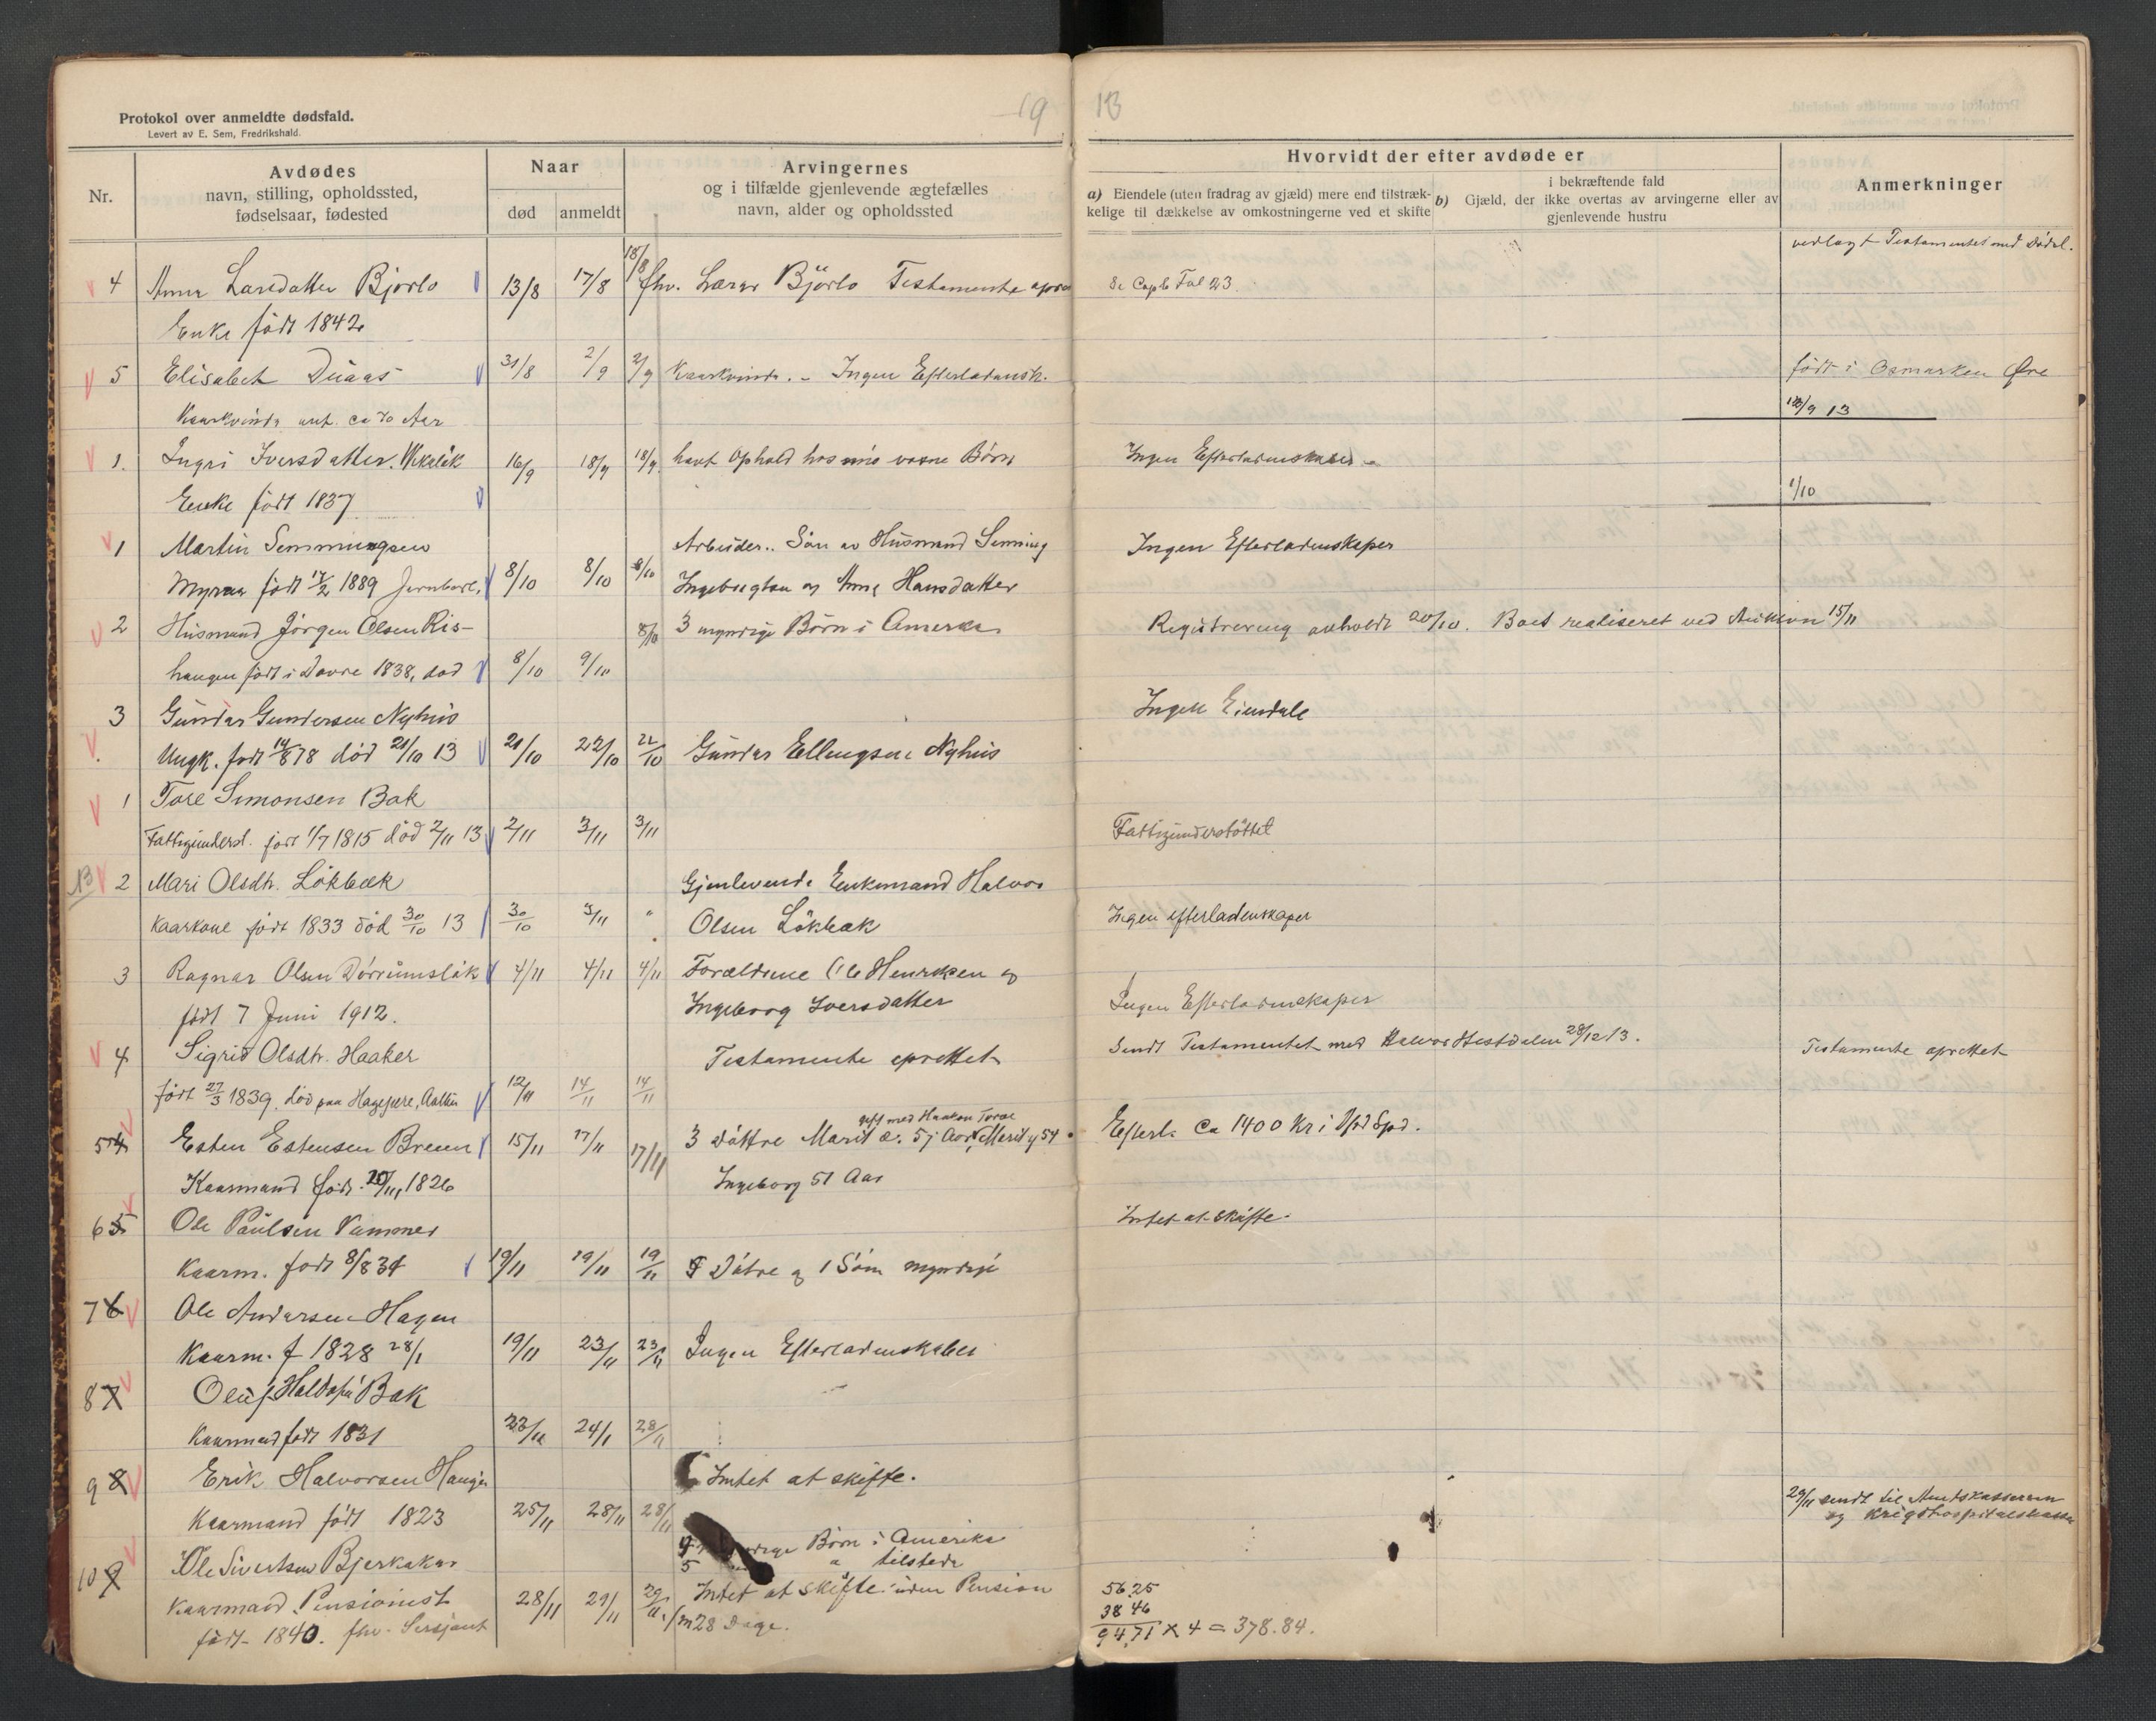 Protokol over anmeldte dødsfald.
Levert av E. Sem, Fredrikshald.
19 13
Nr.
Avdødes
navn, stilling, opholdssted,
fødselsaar, fødested
Naar
død anmeldt
Arvingernes
og i tilfælde gjenlevende ægtefælles
navn, alder og opholdssted
Hvorvidt der efter avdøde er
a) Eiendele (uten fradrag av gjæld) mere end tilstræk-
kelige til dækkelse av omkostningerne ved et skifte
i bekræftende fald
b) Gjæld, der ikke overtas av arvingerne eller av
gjenlevende hustru
Anmerkninger
vedlagt Testamentet med Dødsl.
4 Anne Larsdatter Bjørlo 13/8 17/8 18/8 fhv. Lærer Björlo Testamente opret Se Copb Fol 23.
Enke födt 1842
5 Elisabet Duaas 31/8 2/9 2/9 Kaarkvinde. - Ingen Efterladensk. födt i Osmarken Øre
Kaarkvinde ant. ca 70 Aar 13/9 13
1. Ingri Iversdatter 16/9 18/9 18/9 havt Ophold hos sine voxne Börn Ingen Efterladenskaber
Enke födt 1837 1/10
1 Martin Semmingsen Arbeider.. Sön av Husmand Semming Ingen Efterladenskaper
Myren födt 17/2 1889 Jernbarb. 8/10 8/10 8/10 Ingebrigtsen og Anne Hansdatter
2 Husmand Jörgen Olsen Ris- 8/10 3 myndige Börn i Amerka Registrering avholdt 20/10. Boet realiseret ved Auktion 15/11
haugen födt i Dovre 1838, död 8/10 9/10
3 Gundar Gundersen Nyhus Ingen Eiendele
Ungk. födt 14/8 78 död 21/10 13 21/10 22/10 22/10 Gundar Ellingsen Nyhus
1 Tore Simonsen Bak
Fattigunderst. födt 1/7 1815 död 2/11 13 2/11 3/11 3/11 Fattigunderstöttet
13 2 Mari Olsdtr. Lökbæk Gjenlevende Enkemand Halvor
Kaarkone födt 1833 död 30/10 13 30/10 3/11 " Olsen Lökbæk Ingen efterladenskaper
3 Ragnar Olsen Dörrumslök 4/11 4/11 4/11 Forældrene Ole Henriksen og
födt 7 Juni 1912. Ingeborg Iversdatter Ingen Efterladenskaper
4 Sigrid Olsdtr. Haaker Testamente oprettet Sendt Testamentet med Halvor Hestdalen 28/12 13. Testamente oprettet
födt 27/3 1839, död paa 12/11 14/11 14/11
gift med Haakon Toroe
54 Esten Estensen Breen 15/11 17/11 17/11 3 Döttre Marit Æ. 5j Aar, Marit y 54 Efterl. Ca 1400 Kr i
Kaarmand födt 20/11, 1826 Ingeborg 51 Aar
65 Ole Paulsen Vammer Intet at skifte.
Kaarm. födt 8/8 34 19/11 19/11 19/11 Dötre og 1 Sön myndige
76 Ole Andersen Hagen
Kaarm. f 1828 28/1 19/11 23/11 23/11 Ingen Efterladenskaber
87 Oluf Bak
Kaarmand født 1831 23/11 24/1 28/11
98 Erik Halvorsen Haugen Intet at skifte.
Kaarmand födt 1823 25/11 28/11 28/11 29/11 sendt til Amtskassereren
og Krigshospitalskassen
Börn i Amerika
109 Ole Sivertsen Bjerkaker 5 " tilstede
Kaarmand Pensionist 28/11 29/11 29/11 Intet at skifte uden Pension 56.25
38 46
födt 1840. fhv. Sersjant 28 Dage. 94,71 x 4 = 378.84.